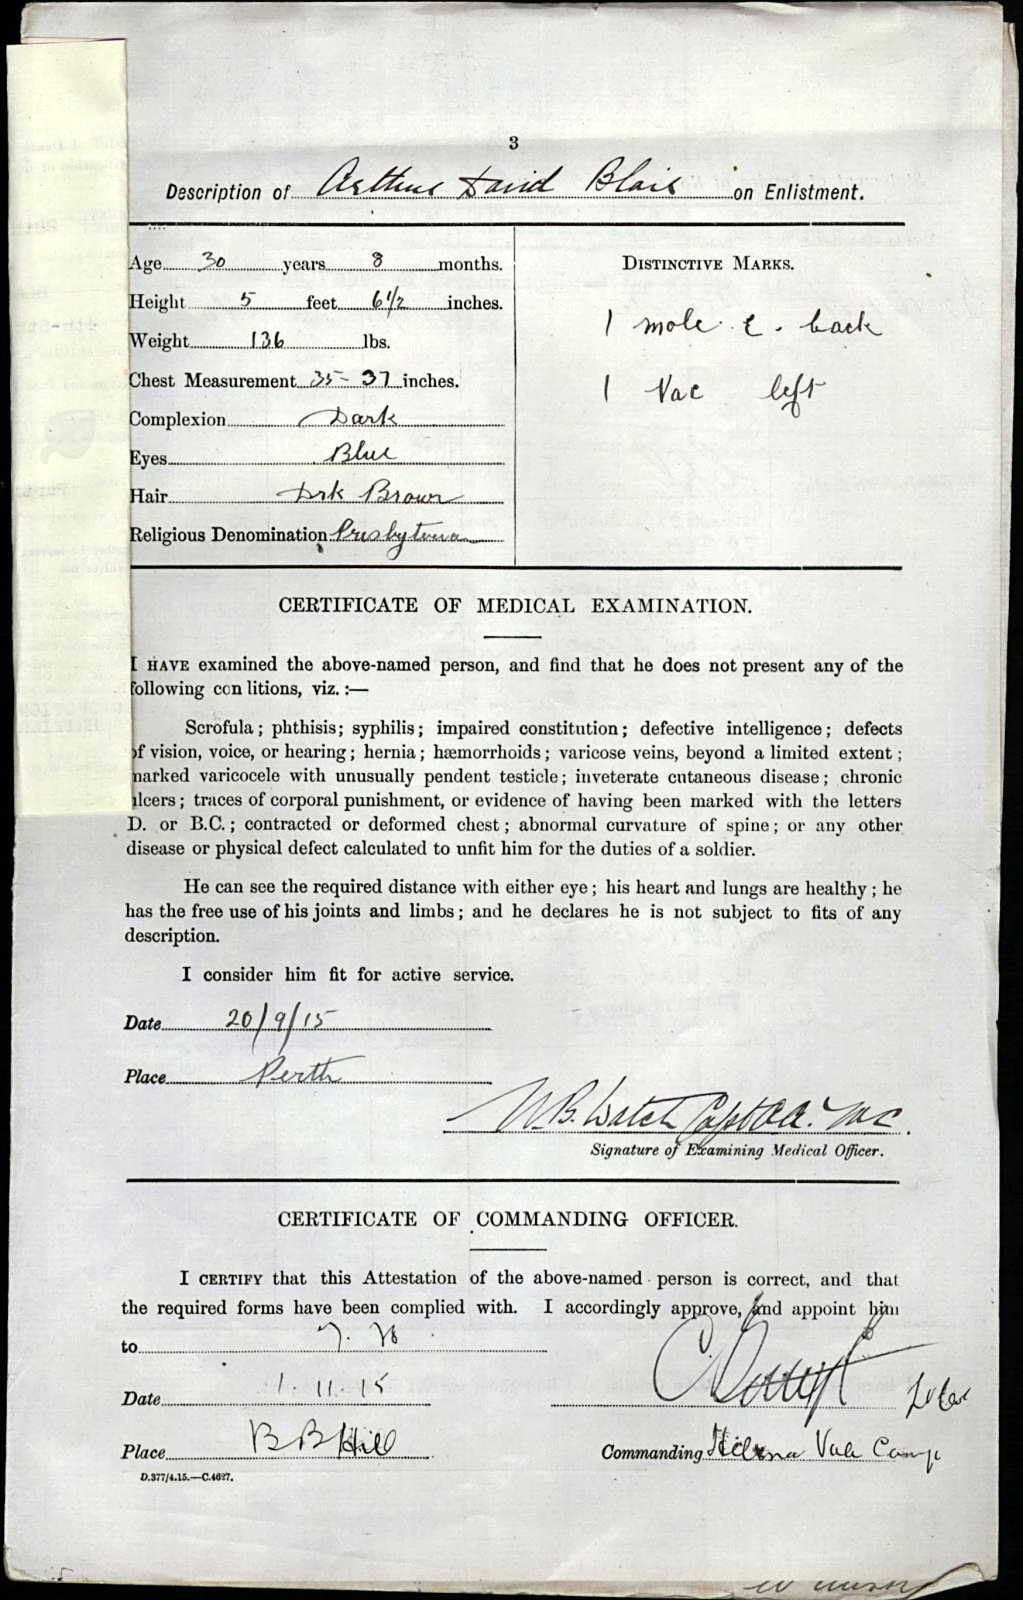 3
Description of Arthur David Blair on Enlistment.
Age 30 years 8 months.
Height 5 feet 6½ inches.
Weight 136 lbs.
Chest Measurement 35-37 inches.
Complexion Dark
Eyes Blue
Hair Drk Brown
Religious Denomination Presbyterian
DISTINCTIVE MARKS.
1 mole . back
1 Vac left
CERTIFICATE OF MEDICAL EXAMINATION.
I HAVE examined the above-named person, and find that he does not present any of the
following con litions, viz. :—
Scrofula; phthisis; syphilis; impaired constitution; defective intelligence; defects
of vision, voice, or hearing; hernia; hæmorrhoids; varicose veins, beyond a limited extent;
marked varicocele with unusually pendent testicle; inveterate cutaneous disease; chronic
ulcers; traces of corporal punishment, or evidence of having been marked with the letters
D. or B.C.; contracted or deformed chest; abnormal curvature of spine; or any other
disease or physical defect calculated to unfit him for the duties of a soldier.
He can see the required distance with either eye; his heart and lungs are healthy; he
has the free use of his joints and limbs; and he declares he is not subject to fits of any
description.
I consider him fit for active service.
Date 20/9/15
Place Perth
Capt AAMC.
Signature of Examining Medical Officer.
CERTIFICATE OF COMMANDING OFFICER.
I CERTIFY that this Attestation of the above-named person is correct, and that
the required forms have been complied with. I accordingly approve, and appoint him
to
Date 1.11.15
Place B B Hill
Commanding Helena Vale Camp
D.377/4.15.—C.4627.